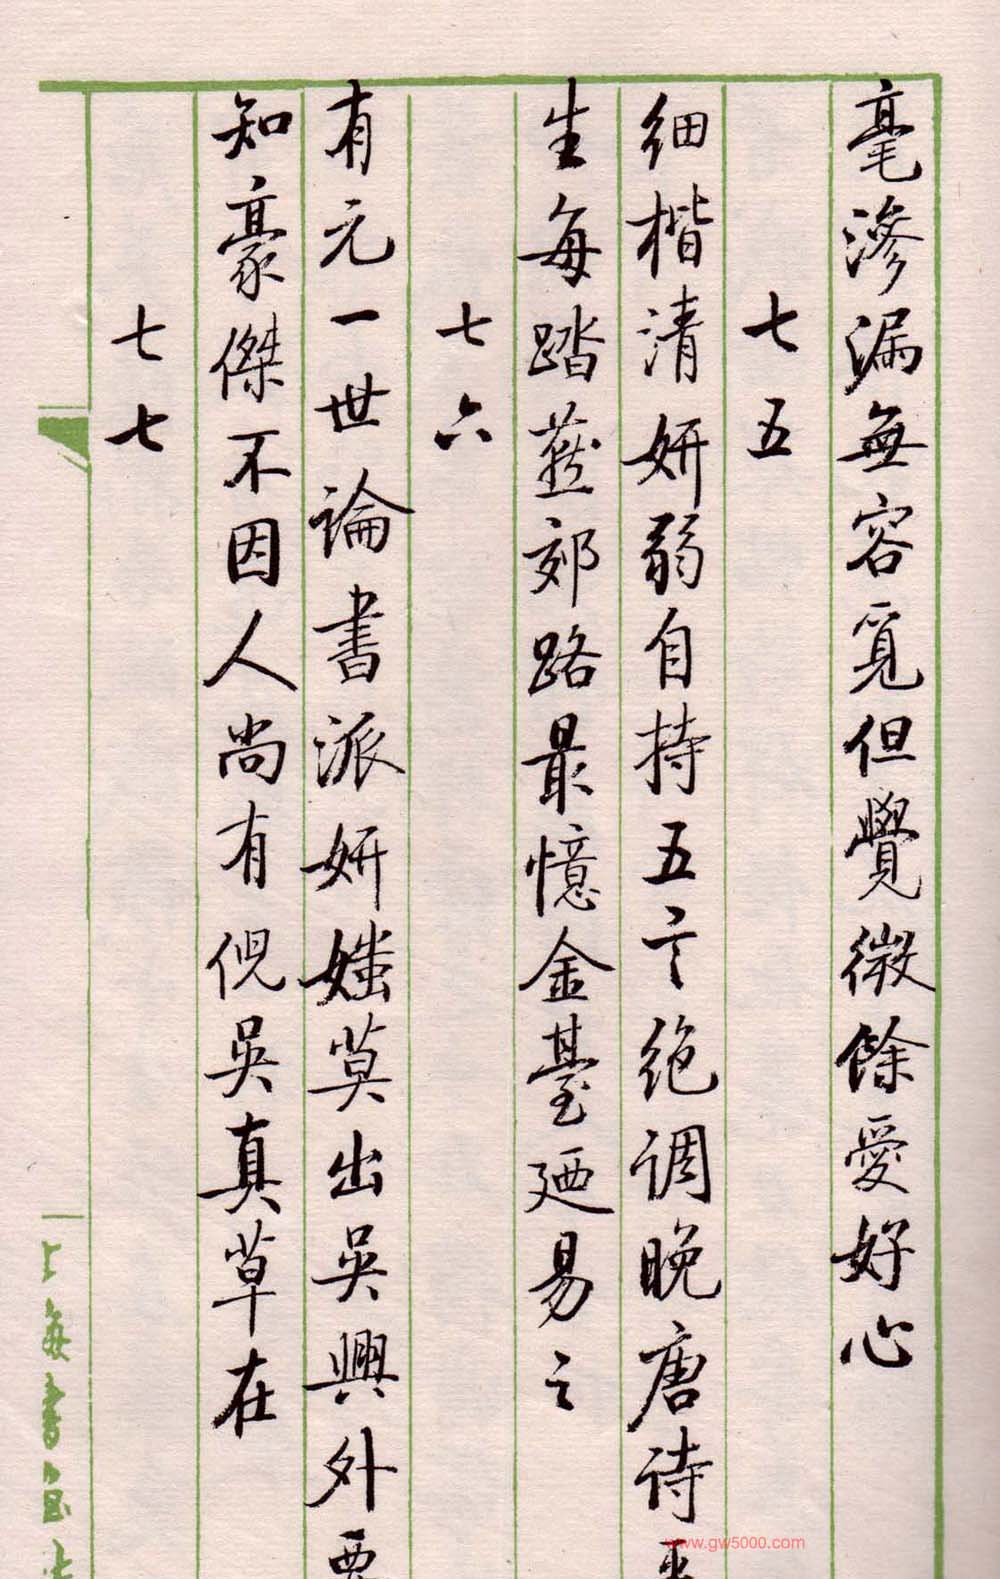 毫滲漏無容覓但覺微餘愛好心
七五
細楷清妍弱自持五言絕調晚唐诗平
生每踏燕郊路最憶金臺廼易之
七六
有元一世論書派妍媸莫出吳興外要
知豪傑不因人尚有倪吳真草在
七七
上海書画
www.gw5000.com